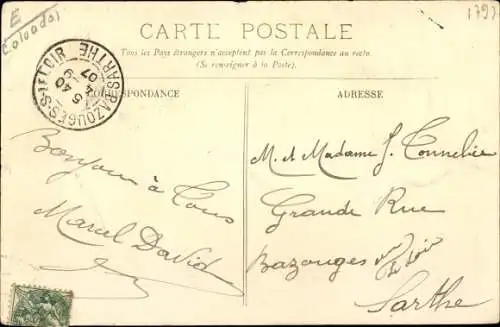 E
Calvados
1797
CARTE POSTALE
Tous les Pays étrangers n'acceptent pas la Correspondance au recto.
(Se renseigner à la Poste).
CORRESPONDANCE
ADRESSE
BAZOUGES-S-LE-LOIR SARTHE
6 40
4 9
07
Bonjour à Tous
Marcel David
M. et Madame J. Tonnelier
Grande Rue
Bazouges sur le Loir
Sarthe